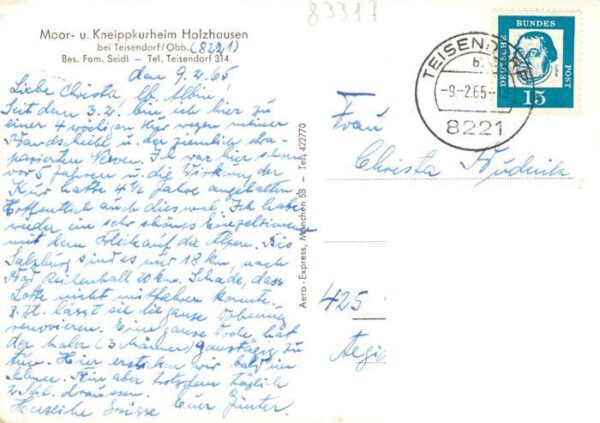 83317
Moor- u. Kneippkurheim Holzhausen
bei Teisendorf/Obb. (8221)
Bes. Fam. Seidl – Tel. Teisendorf 314
den 9.2.65
Liebe Christa, lb. Albin!
Seit dem 3.2. bin ich hier zu
einer 4 wöchigen Kur wegen meiner
Bandscheibe u. der ziemlich stra-
pazierten Nerven. Ich war hier schon
vor 5 Jahren u. die Wirkung der
Kur hatte 4 1/2 Jahre angehalten.
Hoffentlich auch diesmal. Ich habe
wieder ein sehr schönes Einzelzimmer
mit dem Blick auf die Alpen. Bis
Salzburg sind es nur 18 km nach
Bad Reichenhall 20 km. Schade, dass
Lotte nicht mitfahren konnte.
Z.Zt. lässt sie die ganze Wohnung
renovieren. Eine ganze Woche hat
der Maler (3 Männer) ganztägig zu
tun. Hier ersticken wir bald im
Schnee. Bin aber trotzdem täglich
2 Std. draussen.
Herzliche Grüsse Euer Günter.
Aero-Express, München 58 - Tel. 422770
TEISENDORF
-9.-2.65-
8221
DEUTSCHE BUNDESPOST
15
Frau
Christa Rudnik
425
Aegi